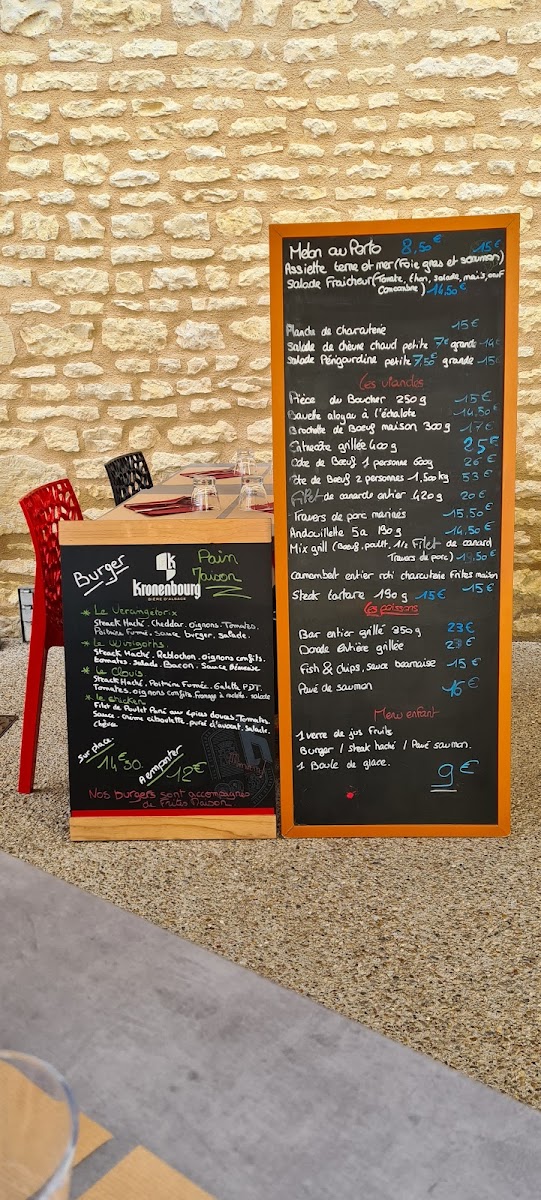 Burger
Pain
Maison
Kronenbourg
BIÈRE D'ALSACE
* Le Verangetorix
Steack Haché. Cheddar. Oignons. Tomates.
Poitrine Fumée. Sauce burger. salade.
* Le Wisigoths
Steack Haché. Reblochon. Oignons confits.
tomates. salade. Bacon. Sauce
* Le Clovis
Steack Haché. Poitrine Fumée. Galette P.D.T.
Tomates. oignons confits. fromage à raclette. salade
* Le chicken
Filet de Poulet Pané aux épices douces. Tomates.
Sauce. crème ciboulette. purée d'avocat. salade.
chèvre
Sur place
14€30.
A emporter
12€
Nos burgers sont accompagnés
de Frites Maison
Melon au Porto 8,50€ 15€
Assiette terre et mer (Foie gras et saumon)
Salade Fraicheur (Tomate, thon, salade, mais, oeuf
Concombre) 14,50€
Planche de charcuterie 15€
Salade de chèvre chaud petite 7€ grande 14€
Salade Périgourdine petite 7,50€ grande 15€
Les viandes
Pièce du Boucher 250g 15€
Bavette aloyau à l'échalote 14,50€
Brochette de Boeuf maison 300g 17€
Entrecôte grillée 400g 25€
Côte de Boeuf 1 personne 600g 26€
Côte de Boeuf 2 personnes 1,500kg 53€
Filet de canard entier 420g 20€
Travers de porc marinés 15,50€
Andouillette 5a 190g 14,50€
Mix grill (Boeuf, poulet, 1/2 Filet de canard
Travers de porc) 19,50€
Camembert entier roti charcuterie Frites maison
15€
Steak tartare 190g 15€
Les poissons
Bar entier grillé 350g 23€
Dorade Entière grillée 23€
Fish & chips, sauce bearnaise 15€
Pavé de saumon 16€
Menu enfant
1 verre de jus fruits
Burger / steak haché / Pavé saumon.
1 Boule de glace. 9€